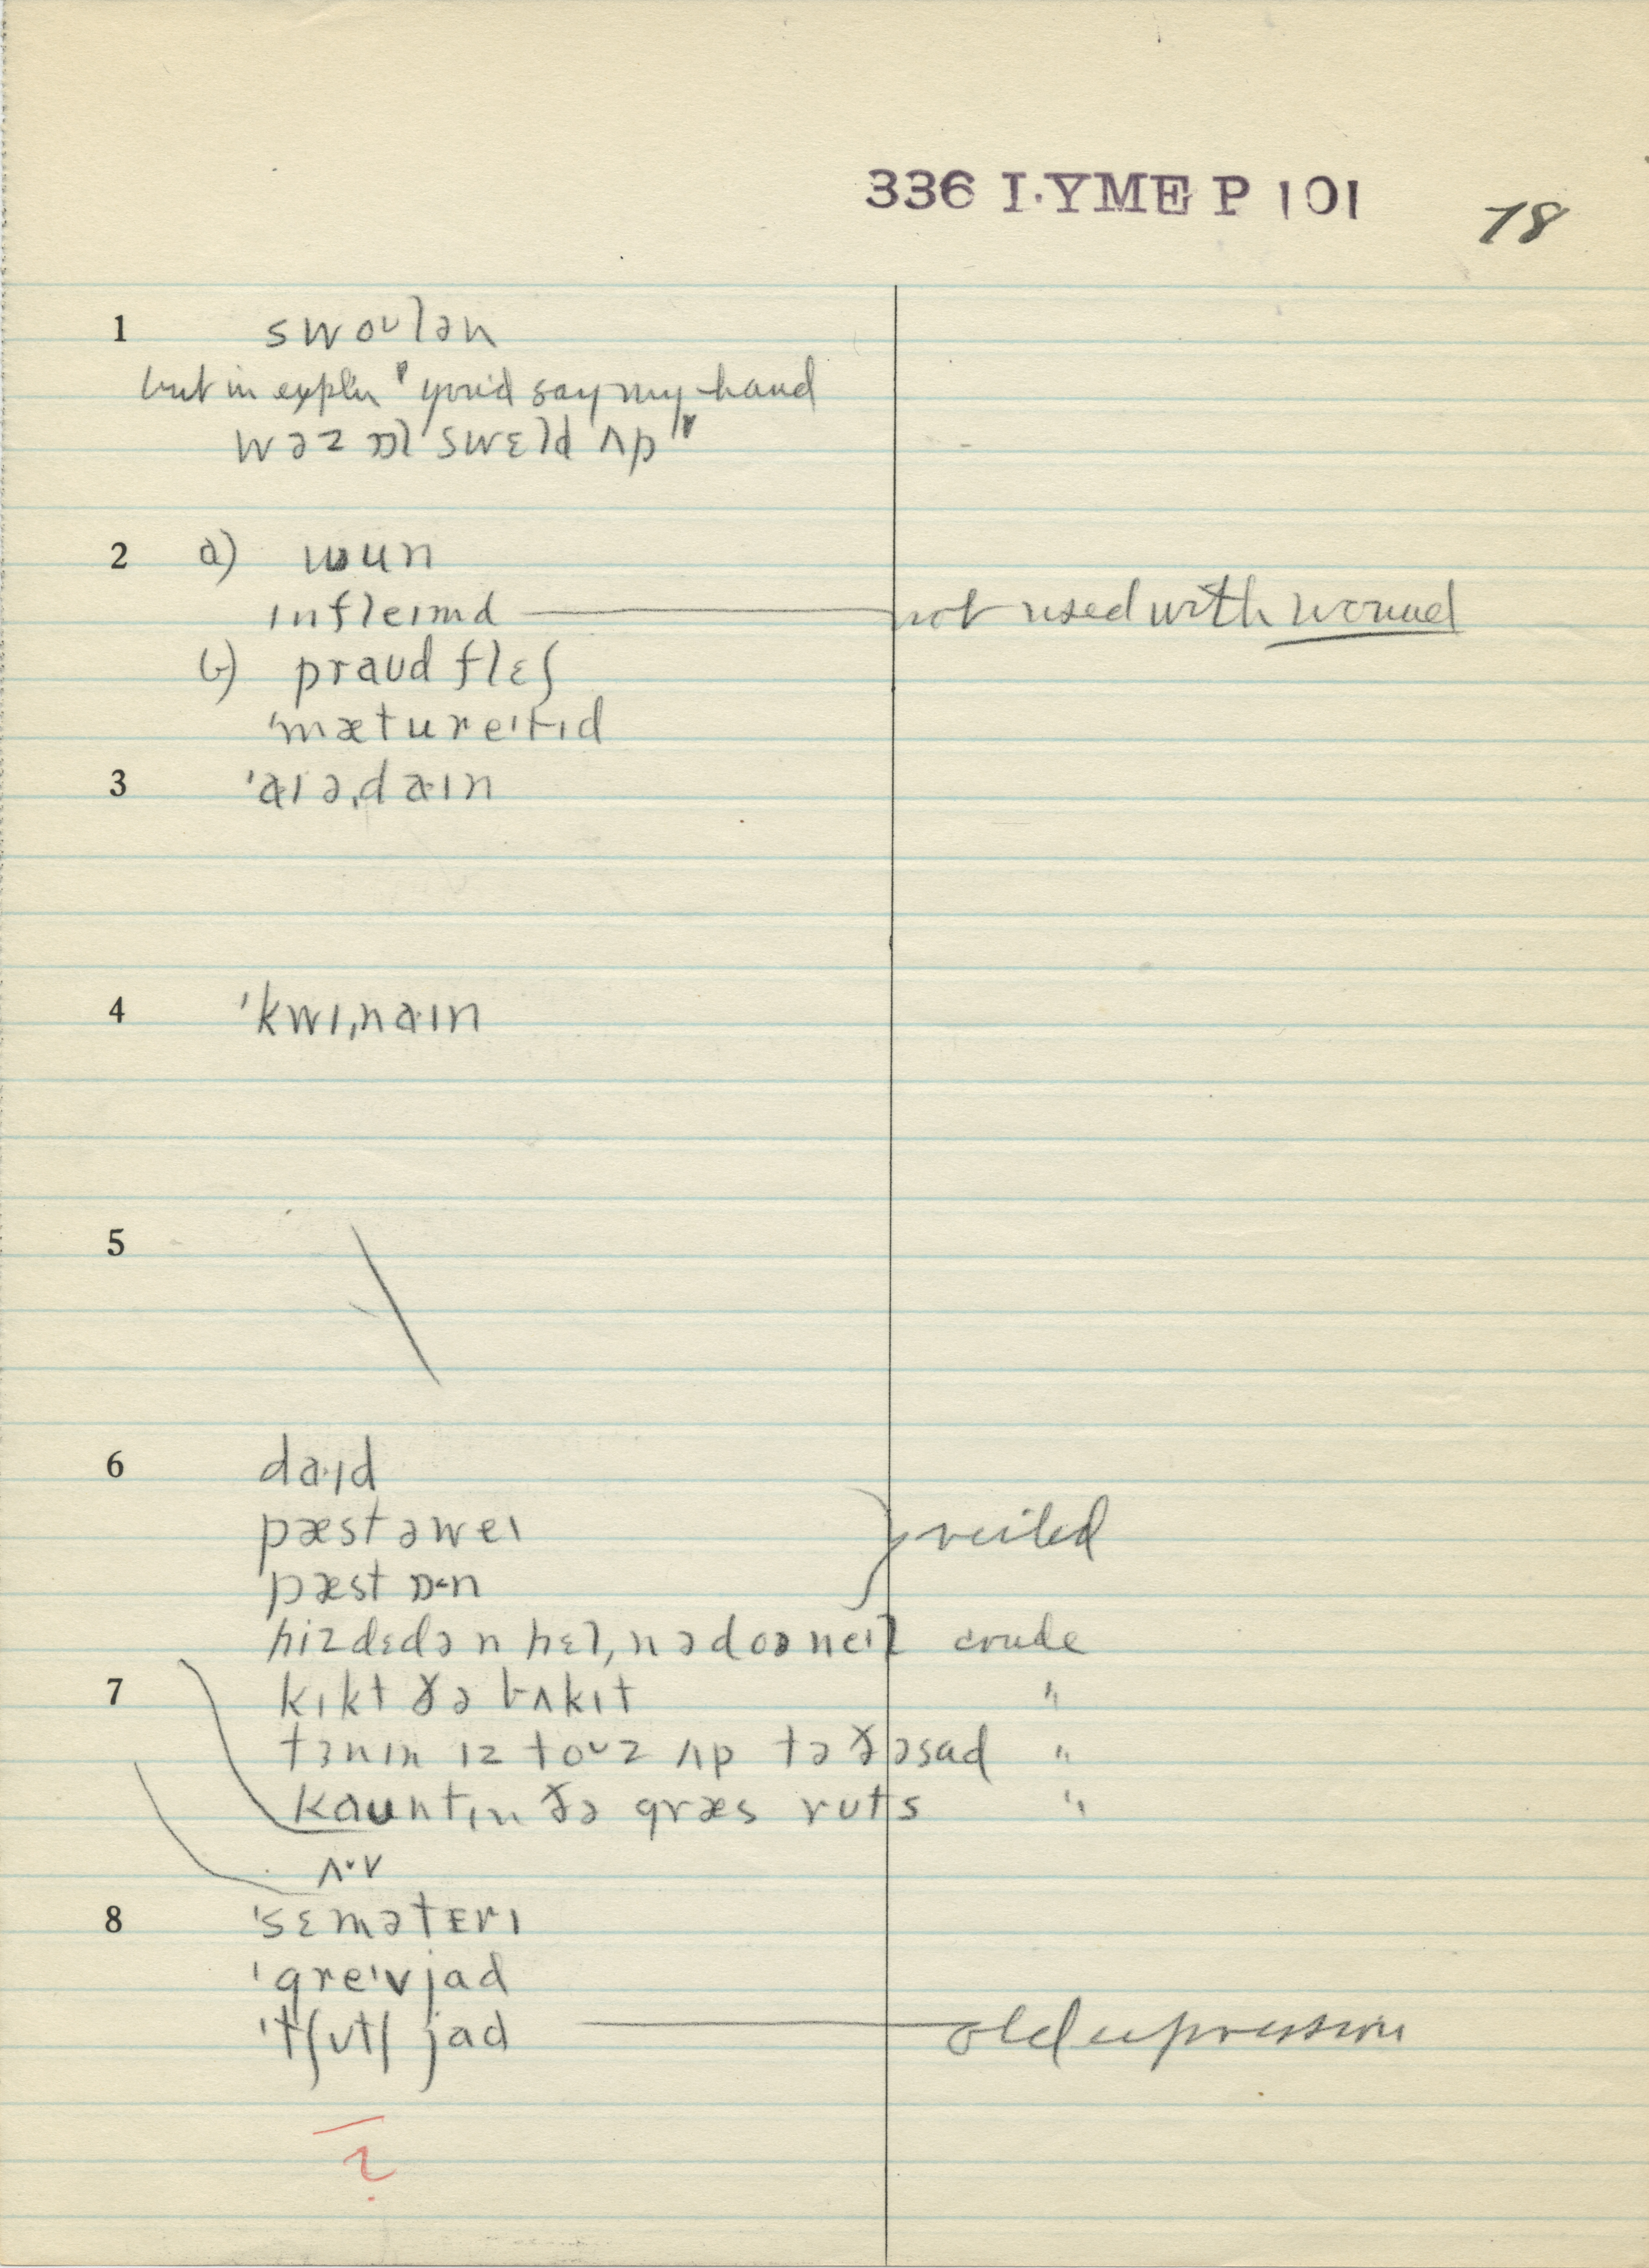 336 LYME P 101 78
1 swoᴜlən
but in expl'n "you'd say my hand
wəz ɒl swɛld ʌp"
2 a) wun
infleɪmd — not used with wound
b) praʊd flɛʃ
'mætureɪtɪd
3 'aɪə,daɪn
4 'kwɪ,naɪn
5
6 da·ɪd
pæst əweɪ } veiled
pæst ɒ·n
hizdɛdə n hɛl, n ədoəneɪl crude
7 kɪkt ðə bʌkɪt "
tɜnɪn ɪz toᴜz ʌp tə ðəsad "
kaʊntɪn ðə græs ruts "
ʌ·v
8 'sɛmətɛrɪ
'greɪvjad
'tʃɜtʃ jad — old expression
?